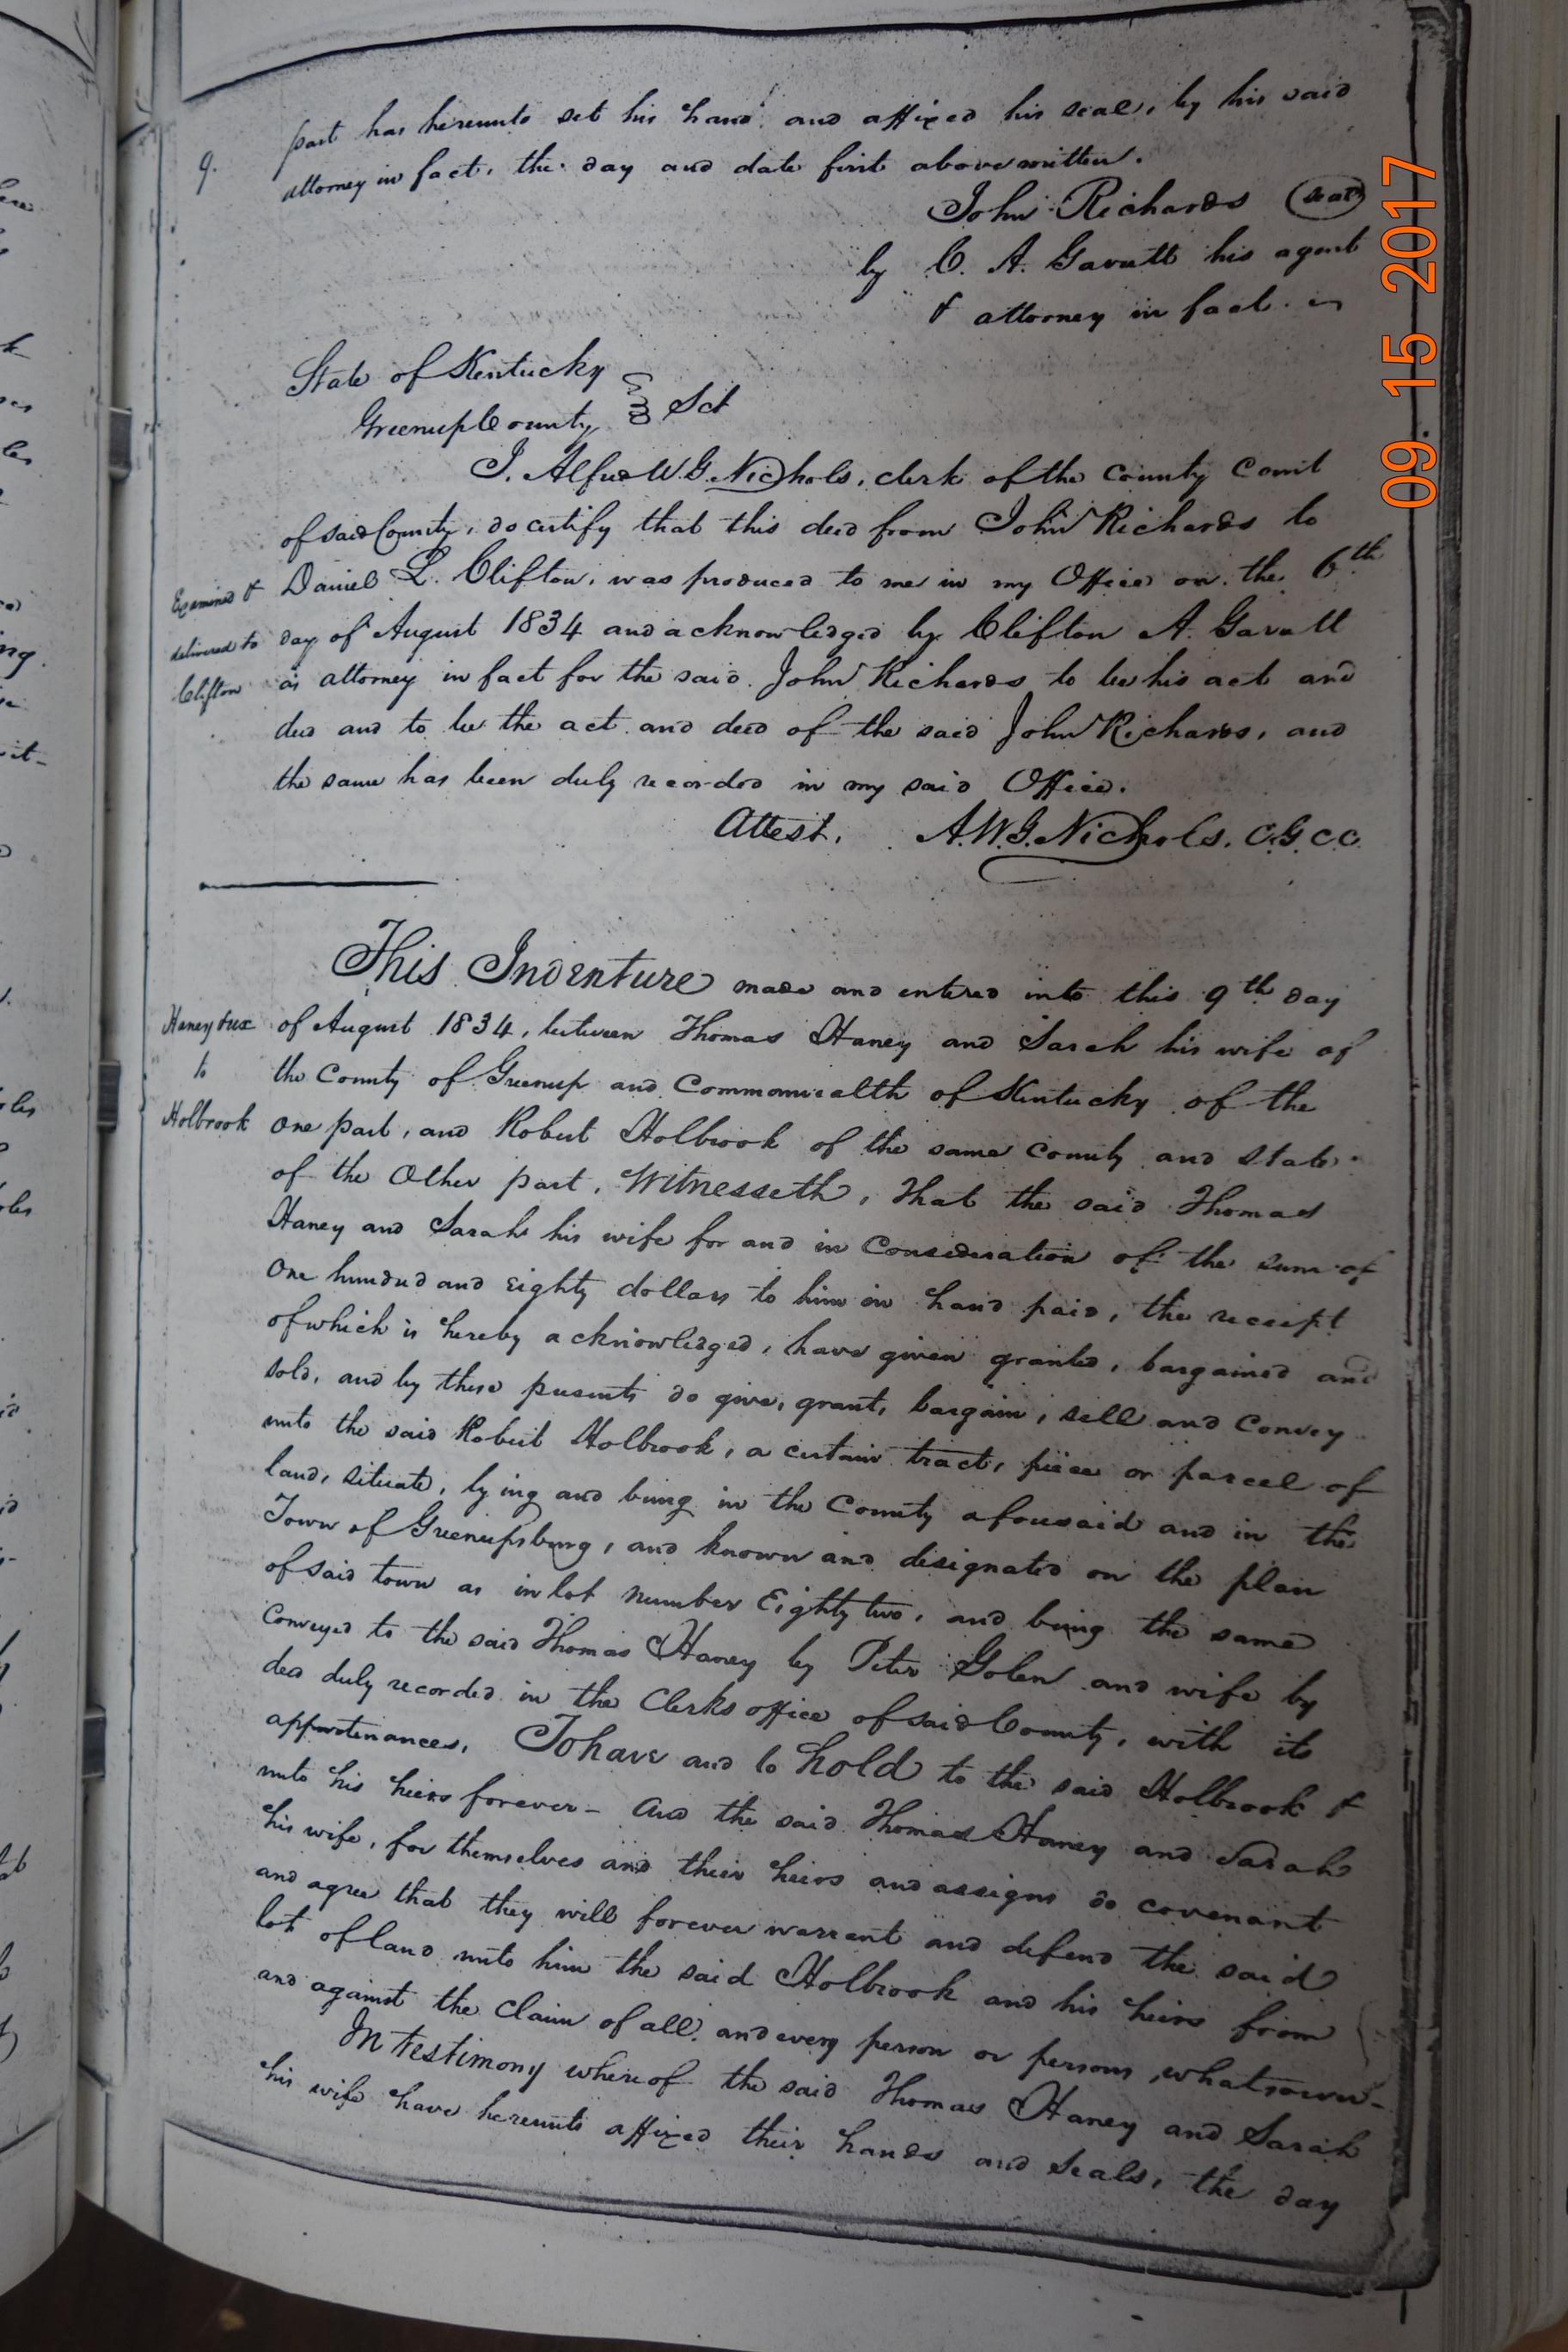 part has hereunto set his hand and affixed his seal, by his said
9. attorney in fact, the day and date first above written.
John Richards (seal)
by C. A. Gavutt his agent
& attorney in fact
State of Kentucky
Greenup County Sct
I. Alfred W. G. Nichols, clerk of the County Court
of said County, do certify that this deed from John Richards to
Daniel L. Clifton, was produced to me in my Office on the 6th
day of August 1834 and acknowledged by Clifton A. Gavutt
as attorney in fact for the said John Richards to be his act and
deed and to be the act and deed of the said John Richards, and
the same has been duly recorded in my said Office.
Attest. A. W. G. Nichols. C.G.C.C.
Examined &
delivered to
Clifton
This Indenture made and entered into this 9th day
of August 1834, between Thomas Haney and Sarah his wife of
the County of Greenup and Commonwealth of Kentucky of the
one part, and Robert Holbrook of the same county and state
of the Other part, Witnesseth, That the said Thomas
Haney and Sarah his wife for and in Consideration of the sum of
One hundred and eighty dollars to him in hand paid, the receipt
of which is hereby acknowledged, have given granted, bargained and
sold, and by these presents do give, grant, bargain, sell and Convey
unto the said Robert Holbrook, a certain tract, piece or parcel of
land, situate, lying and being in the County aforesaid and in the
Town of Greenupsburg, and known and designated on the plan
of said town as in lot number Eighty two, and being the same
conveyed to the said Thomas Haney by Peter Golen and wife by
deed duly recorded in the Clerks office of said County, with its
appurtenances, To have and to hold to the said Holbrook &
unto his heirs forever - And the said Thomas Haney and Sarah
his wife, for themselves and their heirs and assigns do covenant
and agree that they will forever warrant and defend the said
lot of land unto him the said Holbrook and his heirs from
and against the claim of all and every person or persons whatsoever -
In testimony whereof the said Thomas Haney and Sarah
his wife have hereunto affixed their hands and seals, the day
Haney & ux
to
Holbrook
09. 15 2017